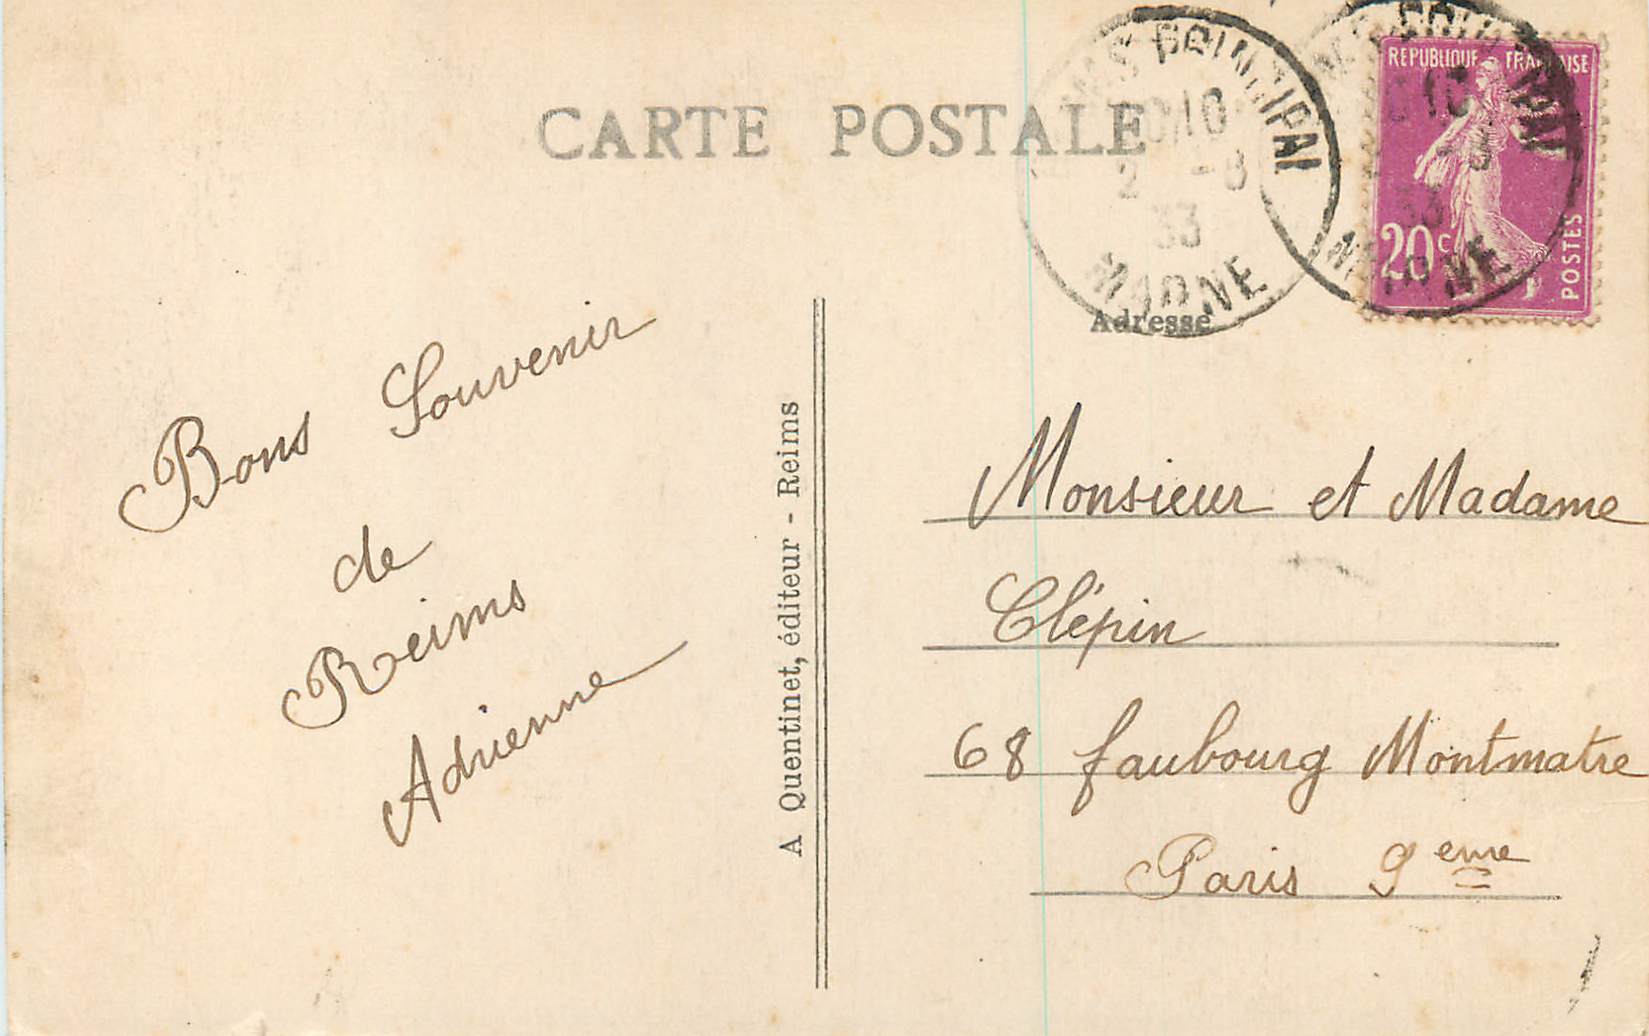 CARTE POSTALE
REPUBLIQUE FRANÇAISE
20c
POSTES
PRINCIPAL
2 -8
33
MARNE
Adresse
Bons Souvenir
de
Reims
Adrienne
A Quentinet, éditeur - Reims
Monsieur et Madame
Clépin
68 faubourg Montmatre
Paris 9eme